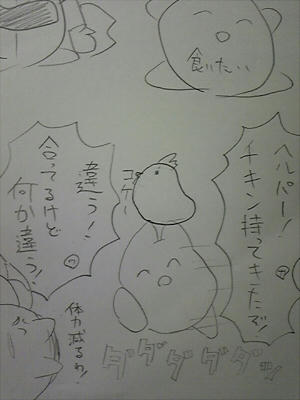 食いたい
ヘルパー!
チキン持ってきたぞ!
コケー
違う!
合ってるけど
何か違う!
体力減るわ!
ダダダダダッ